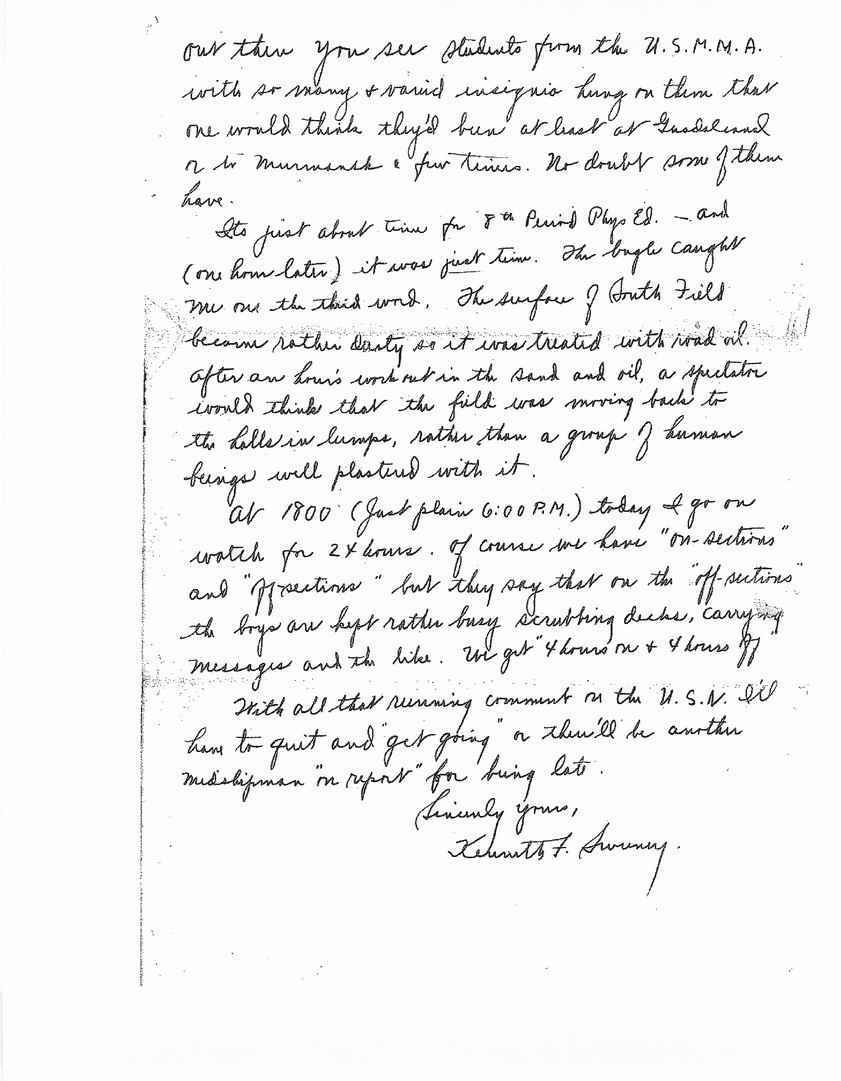 out there you see students from the U.S.M.M.A.
with so many & varied insignia hung on them that
one would think they'd been at least at Guadalcanal
or to Murmansk a few times. No doubt some of them
have.
Its just about time for 8th Period Phys Ed. – and
(one hour later) it was just time. The bugle caught
me on the third word. The surface of South Field
became rather dusty so it was treated with road oil.
After an hour's work out in the sand and oil, a spectator
would think that the field was moving back to
the halls in lumps, rather than a group of human
beings well plastered with it.
At 1800 (Just plain 6:00 P.M.) today I go on
watch for 24 hours. Of course we have "on-sections"
and "off-sections" but they say that on the "off-sections"
the boys are kept rather busy scrubbing decks, carrying
messages and the like. We get "4 hours on & 4 hours off"
With all that running comment on the U.S.N. I'll
have to quit and "get going" or there'll be another
midshipman "on report" for being late.
Sincerely yours,
Kenneth F. Sweeney.